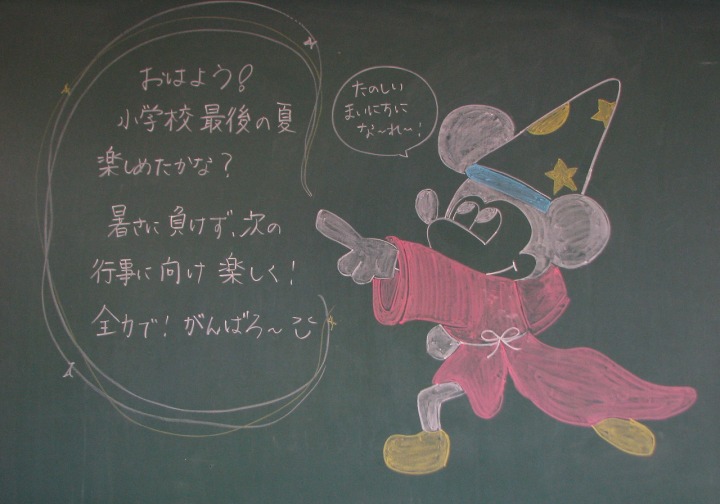 おはよう!
小学校 最後の夏
楽しめたかな?
暑さに負けず、次の
行事に向け 楽しく!
全力で! がんばろ〜
たのしい
まいにちに
な〜れ〜!